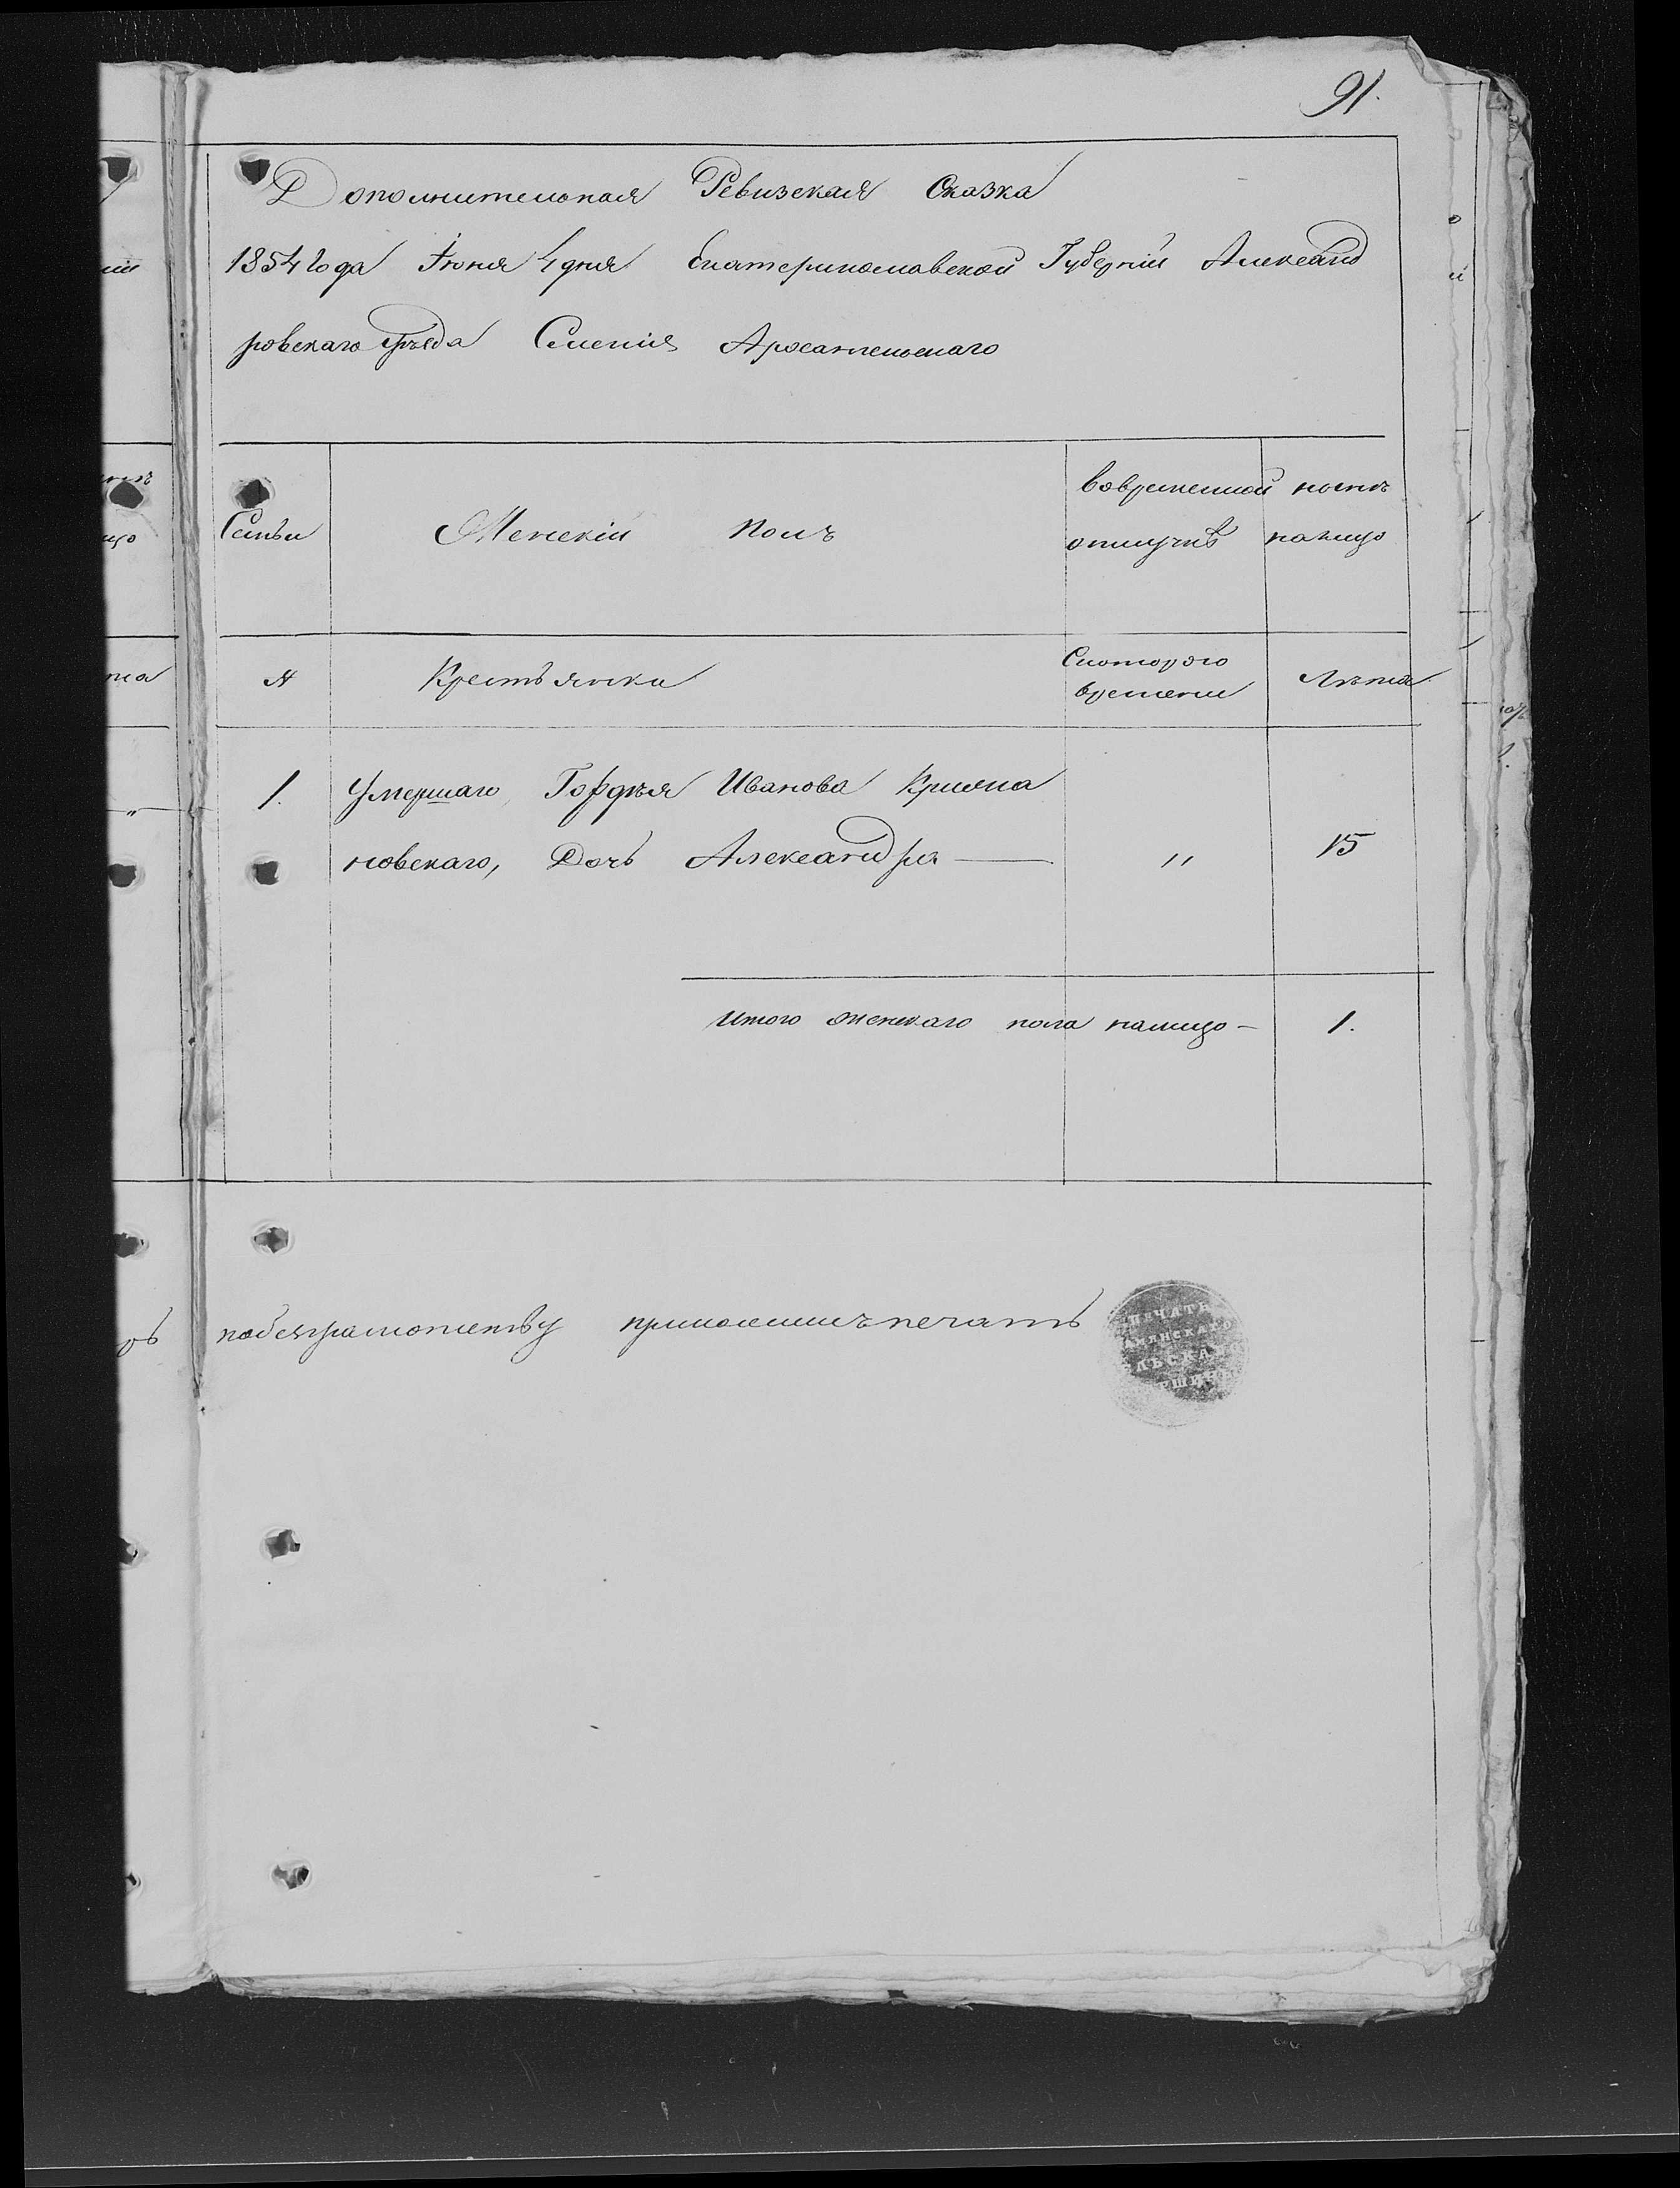 91.
Дополнительная Ревизская Сказка
1854 года Июня 4 дня Екатеринославской Губерніи Александ
ровскаго уѣзда Селенія Архангельскаго
Семьи
Женскій полъ
Вовременной
отлучкѣ
ностъ
налицо
№
Крестьянки
Скотораго
времени
Лѣта
1. Умершаго Гордѣя Иванова
новскаго, Дочь Александра — " 15
Итого женскаго пола налицо — 1.
побезграмотству печать
ПЕЧАТЬ